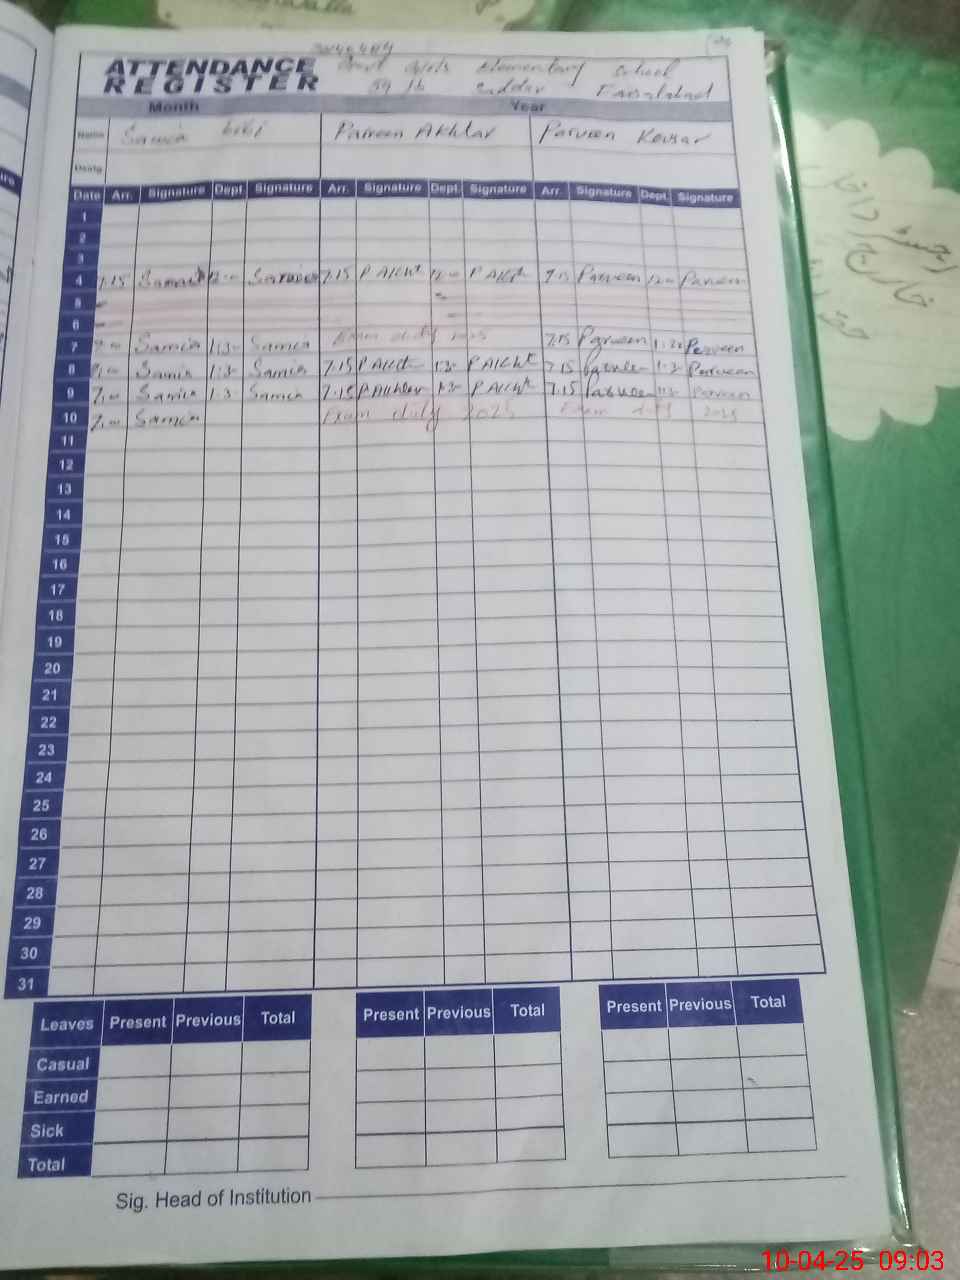 ATTENDANCE Govt Girls Elementary School
REGISTER 59 Jb Saddar Faisalabad
Month Year
Name Samia bibi Parveen Akhtar Parveen Kousar
Desig
Date Arr. Signature Dept. Signature Arr. Signature Dept. Signature Arr. Signature Dept. Signature
1
2
3
4 7.15 Samia 12 Samia 7.15 P Akht 12 P Akht 7.15 Parveen 12 Parveen
5
6
7 7 Samia 1:3 Samia Exam duty 2025 7.15 Parveen 1:3 Parveen
8 Samia 1:3 Samia 7.15 P Akht 1:3 P Akht 7.15 Parveen 1:3 Parveen
9 7 Samia 1:3 Samia 7.15 P Akhtar 1:3 P Akht 7.15 Parveen 1:3 Parveen
10 7 Samia Exam duty 2025 Exam duty 2025
11
12
13
14
15
16
17
18
19
20
21
22
23
24
25
26
27
28
29
30
31
Leaves Present Previous Total Present Previous Total Present Previous Total
Casual
Earned
Sick
Total
Sig. Head of Institution
رجسٹر داخل
خارج
10-04-25 09:03